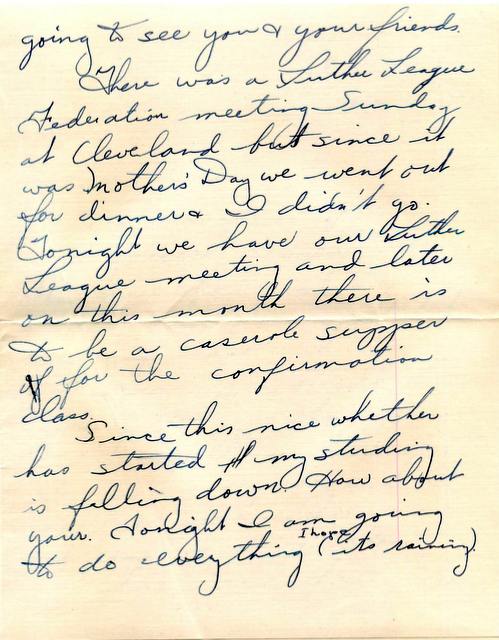 going to see you & your friends.
There was a Luther League
Federation meeting Sunday
at Cleveland but since it
was Mother's Day we went out
for dinner & I didn't go.
Tonight we have our Luther
League meeting and later
on this month there is
to be a caserole supper
for the confirmation
class.
Since this nice whether
has started my studing
is falling down. How about
your. Tonight I am going
I hope
to do everything (its raining)